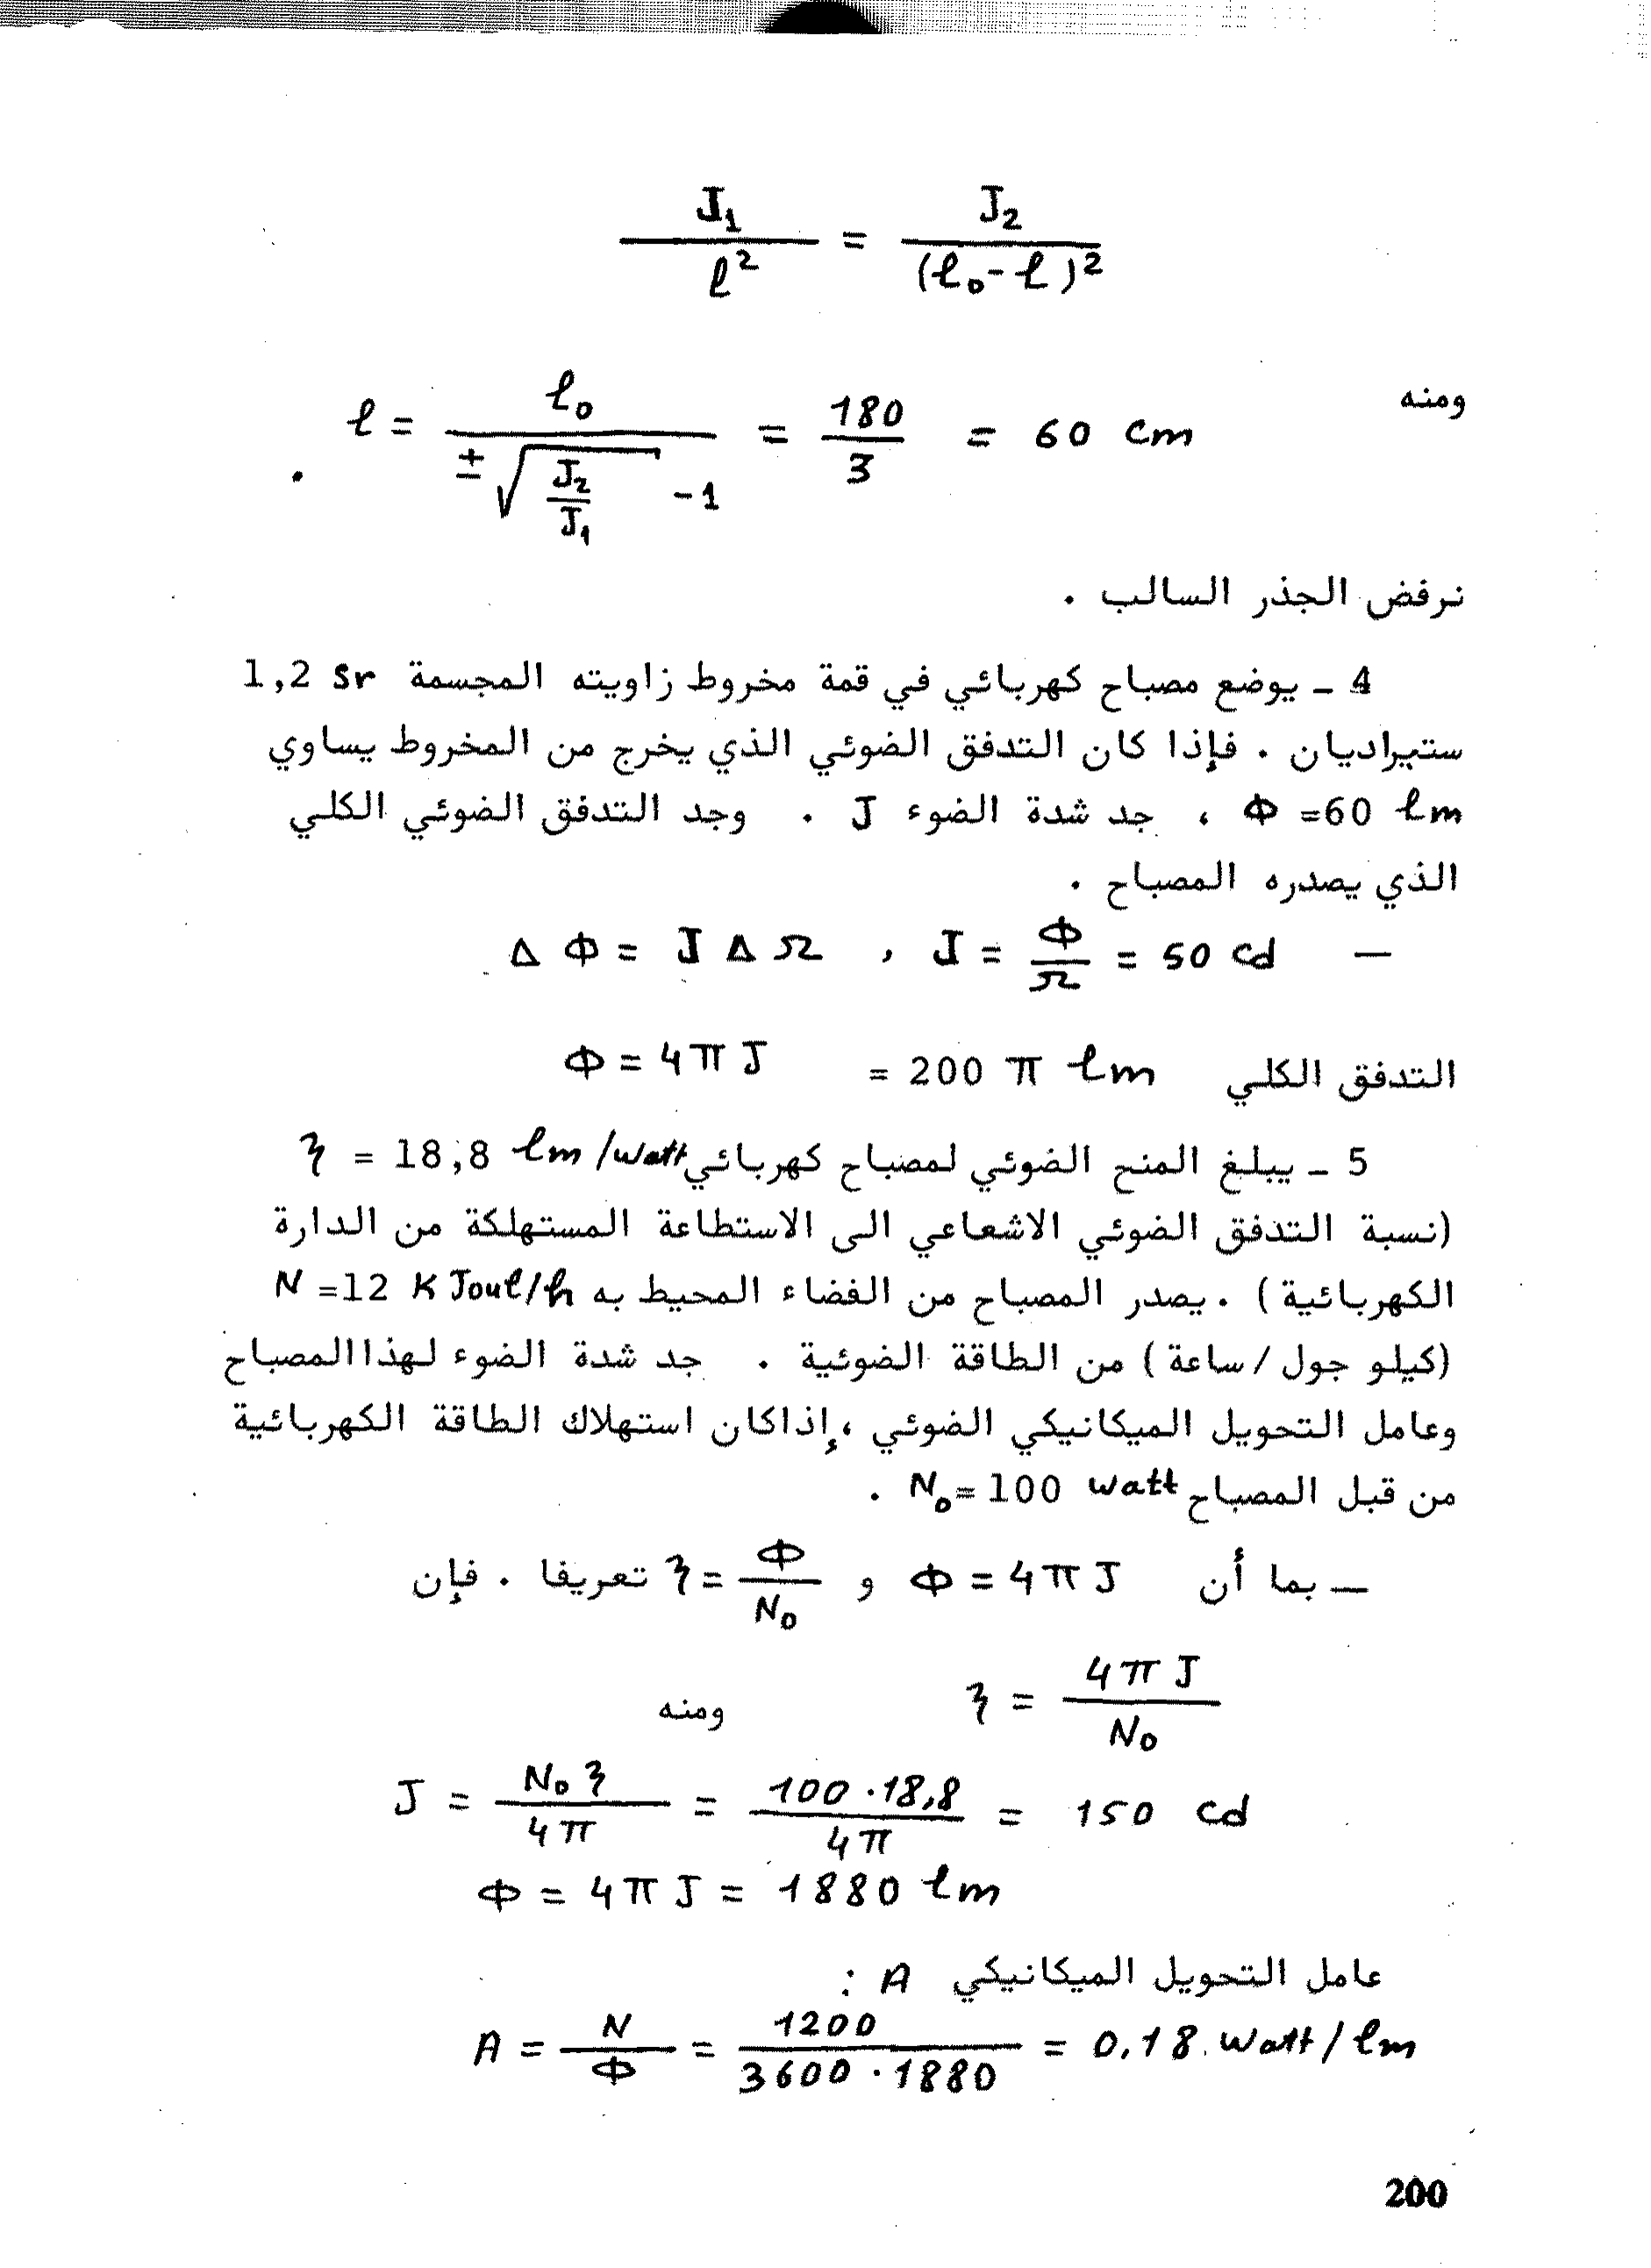 J₁ / ℓ² = J₂ / (ℓ₀-ℓ)²
ومنه ℓ = ℓ₀ / (±√(J₂/J₁) -1) = 180/3 = 60 cm .
نرفض الجذر السالب .
4 ـ يوضع مصباح كهربائي في قمة مخروط زاويته المجسمة 1,2 Sr
ستيراديان . فإذا كان التدفق الضوئي الذي يخرج من المخروط يساوي
Φ =60 ℓm ، جد شدة الضوء J . وجد التدفق الضوئي الكلي
الذي يصدره المصباح .
— Δ Φ = J Δ Ω , J = Φ/Ω = 50 cd
التدفق الكلي Φ = 4π J = 200 π ℓm
5 ـ يبلغ المنح الضوئي لمصباح كهربائي η = 18,8 ℓm /watt
(نسبة التدفق الضوئي الاشعاعي الى الاستطاعة المستهلكة من الدارة
الكهربائية ) . يصدر المصباح من الفضاء المحيط به N =12 K Joul/h
(كيلو جول /ساعة ) من الطاقة الضوئية . جد شدة الضوء لهذا المصباح
وعامل التحويل الميكانيكي الضوئي ،إذاكان استهلاك الطاقة الكهربائية
من قبل المصباح N₀= 100 watt .
ـ بما أن Φ = 4π J و η = Φ/N₀ تعريفا . فإن
η = 4π J / N₀ ومنه
J = N₀ η / 4π = 100 . 18,8 / 4π = 150 cd
Φ = 4π J = 1880 ℓm
عامل التحويل الميكانيكي A :
A = N/Φ = 1200 / 3600 . 1880 = 0.18. Watt/ℓm
200